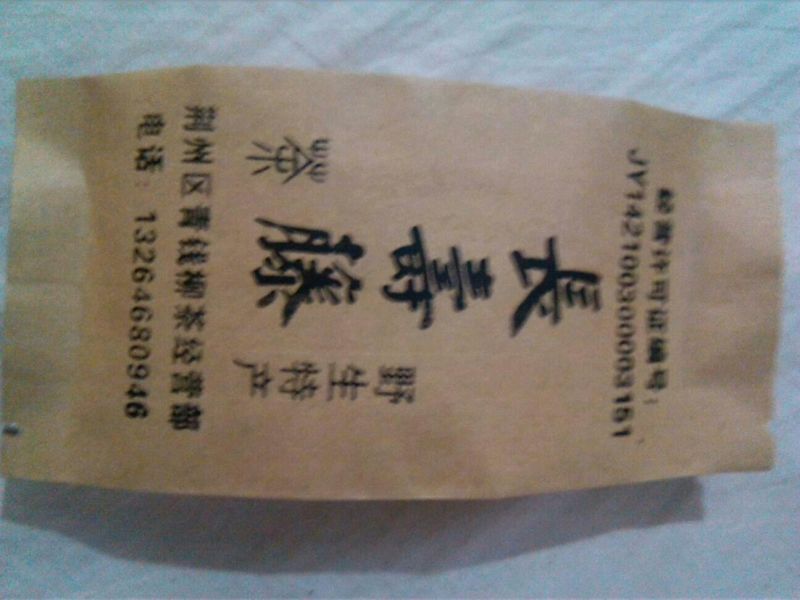 经营许可证编号：
JY14210030003151
長壽藤
茶
野生特产
荆州区青钱柳茶经营部
电话：13264680946